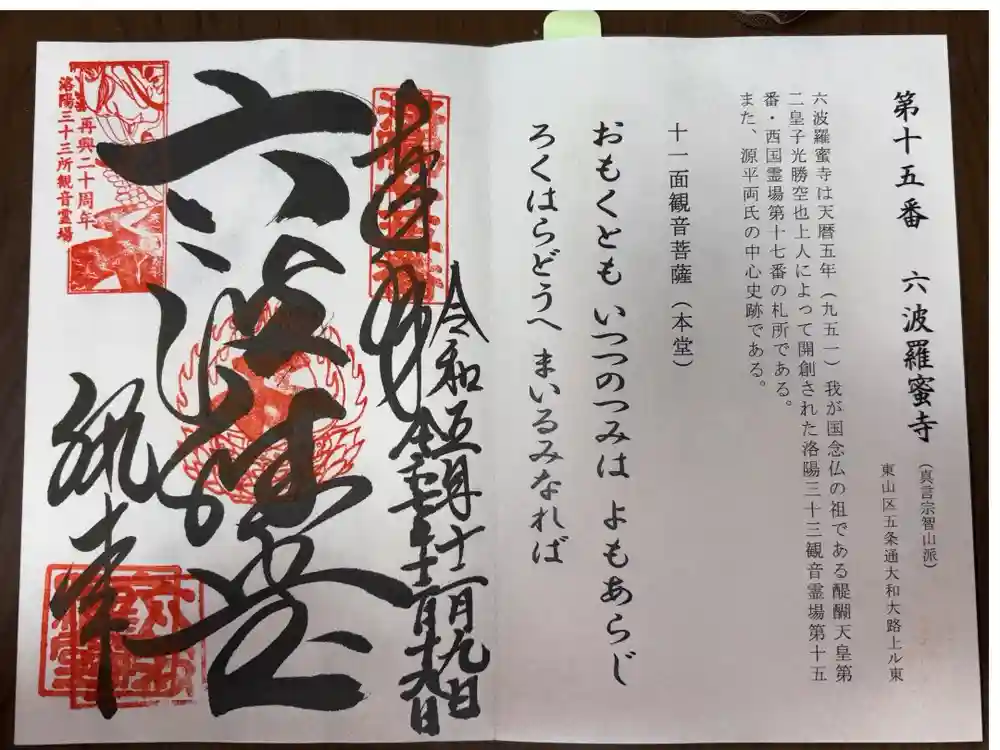 第十五番 六波羅蜜寺
(真言宗智山派)
東山区五条通大和大路上ル東
六波羅蜜寺は天暦五年(九五一)我が国念仏の祖である醍醐天皇第
二皇子光勝空也上人によって開創された洛陽三十三観音霊場第十五
番・西国霊場第十七番の札所である。
また、源平両氏の中心史跡である。
十一面観音菩薩(本堂)
おもくとも いつつのつみは よもあらじ
ろくはらどうへ まいるみなれば
奉拝
令和五年十一月九日
六波羅堂
再興二十周年
洛陽三十三所観音霊場